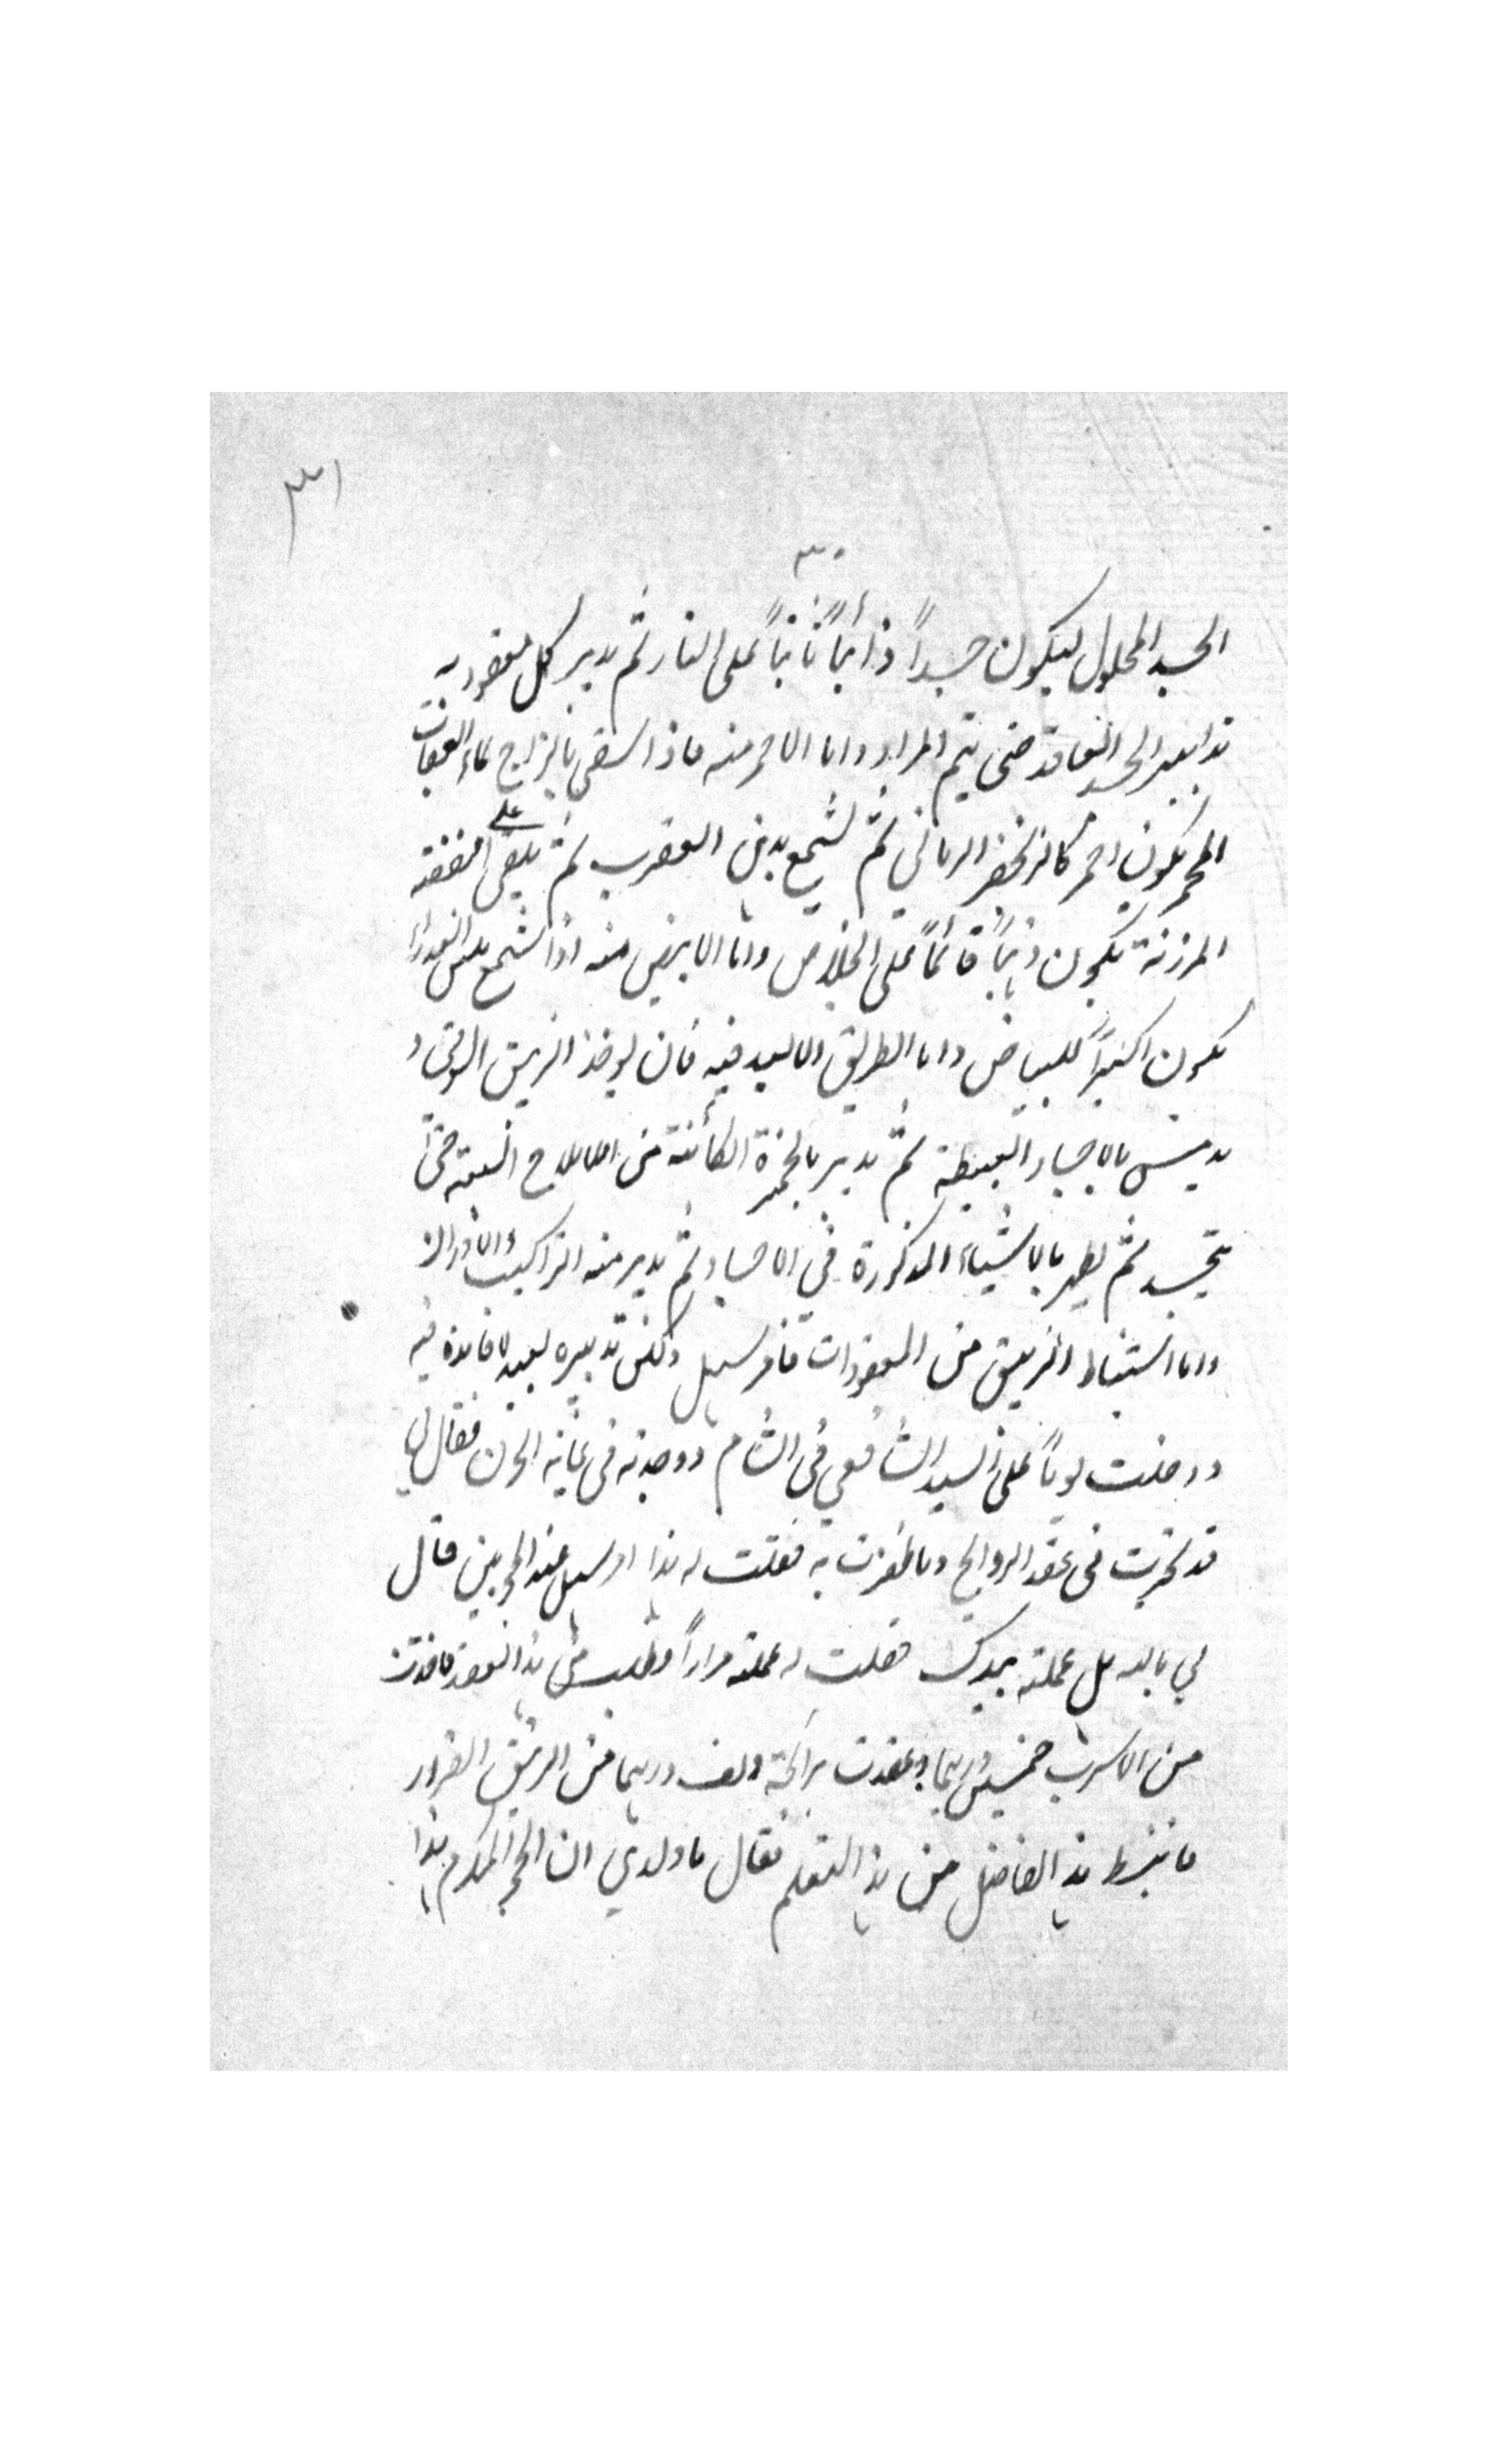 ٣١
٣٠
الجسد المحلول ليكون جسداً ذائباً ثابتاً على النار ثم يدبر كل معقود به
تدابير الجسد العاقد حتى يتم المراد واما الاحمر منه فاذا سقى بالزاج بماء العقاب
المحمر يكون احمر كالزنجفر الرماني ثم يشمع بدهن العقرب ثم يلقى على الفضة
المرزنة يكون ذهباً قائماً على الخلاص واما الابيض منه اذا شمع بلبن العذراء
يكون اكسيراً للبياض واما الطريق الابعد فيه فان يوخذ الزيبق السوقى و
يدمس بالاجساد البسيطة ثم يدبر بالخمرة الكائنة من الاملاح السبعة حتى
يتجسد ثم يطهر بالاشياء المذكورة في الاجساد ثم يدبر منه التراكيب والاوزان
واما استنباط الزيبق من المعقودات فامر سهل ولكن تدبيره بعيد لا فائدة فيه
ودخلت يوماً على السيد الشافعي في الشام ووجدته في غاية الحزن فقال لي
قد تحيرت في عقد الروايح وما ظفرت به فقلت له هذا امر سهل عند المجربين قال
لي بالله هل عملته بيدك فقلت له عملته مراراً وطلب منى هذا العقد فاخذت
من الاسرب خمسين درهما وعقدت برائحته الف درهما من الزيبق الفرار
فانبسط هذا الفاضل من هذا التعليم فقال يا ولدي ان الحجر المكرم هذا